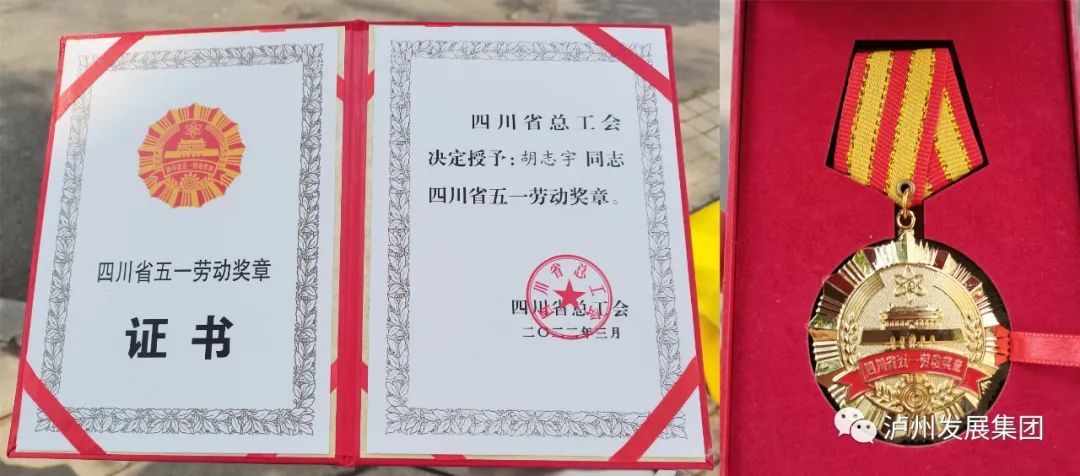 四川省五一劳动奖章
四川省五一劳动奖章
证书
四川省总工会
决定授予:胡志宇 同志
四川省五一劳动奖章。
四川省总工会
四川省总工会
二〇二二年三月
四川省五一劳动奖章
泸州发展集团